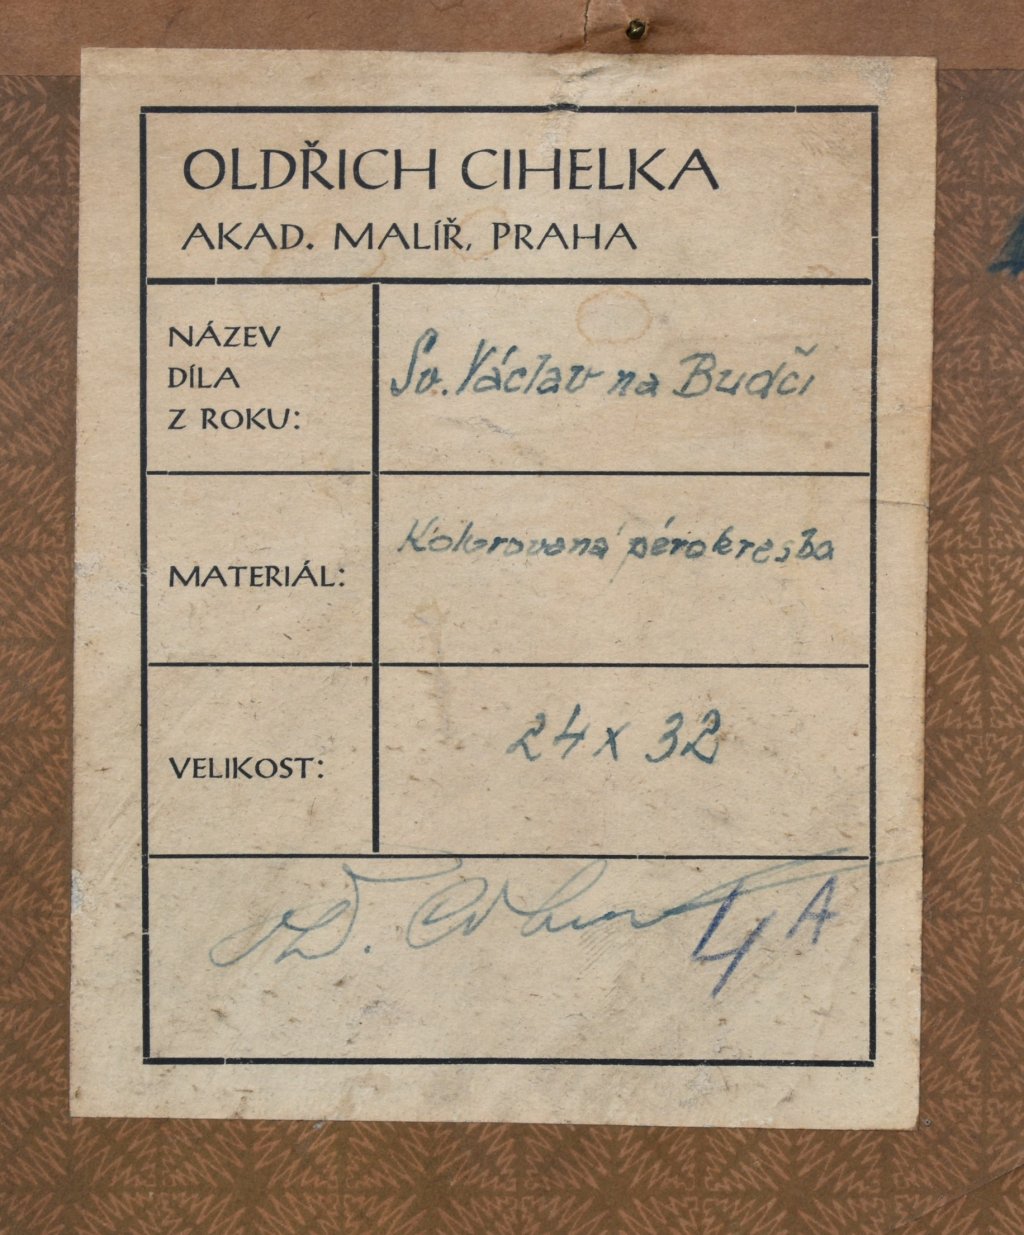 OLDŘICH CIHELKA
AKAD. MALÍŘ, PRAHA
NÁZEV
DÍLA
Z ROKU:
Sv. Václav na Budči
MATERIÁL:
Kolorovaná pérokresba
VELIKOST:
24 x 32
4 A